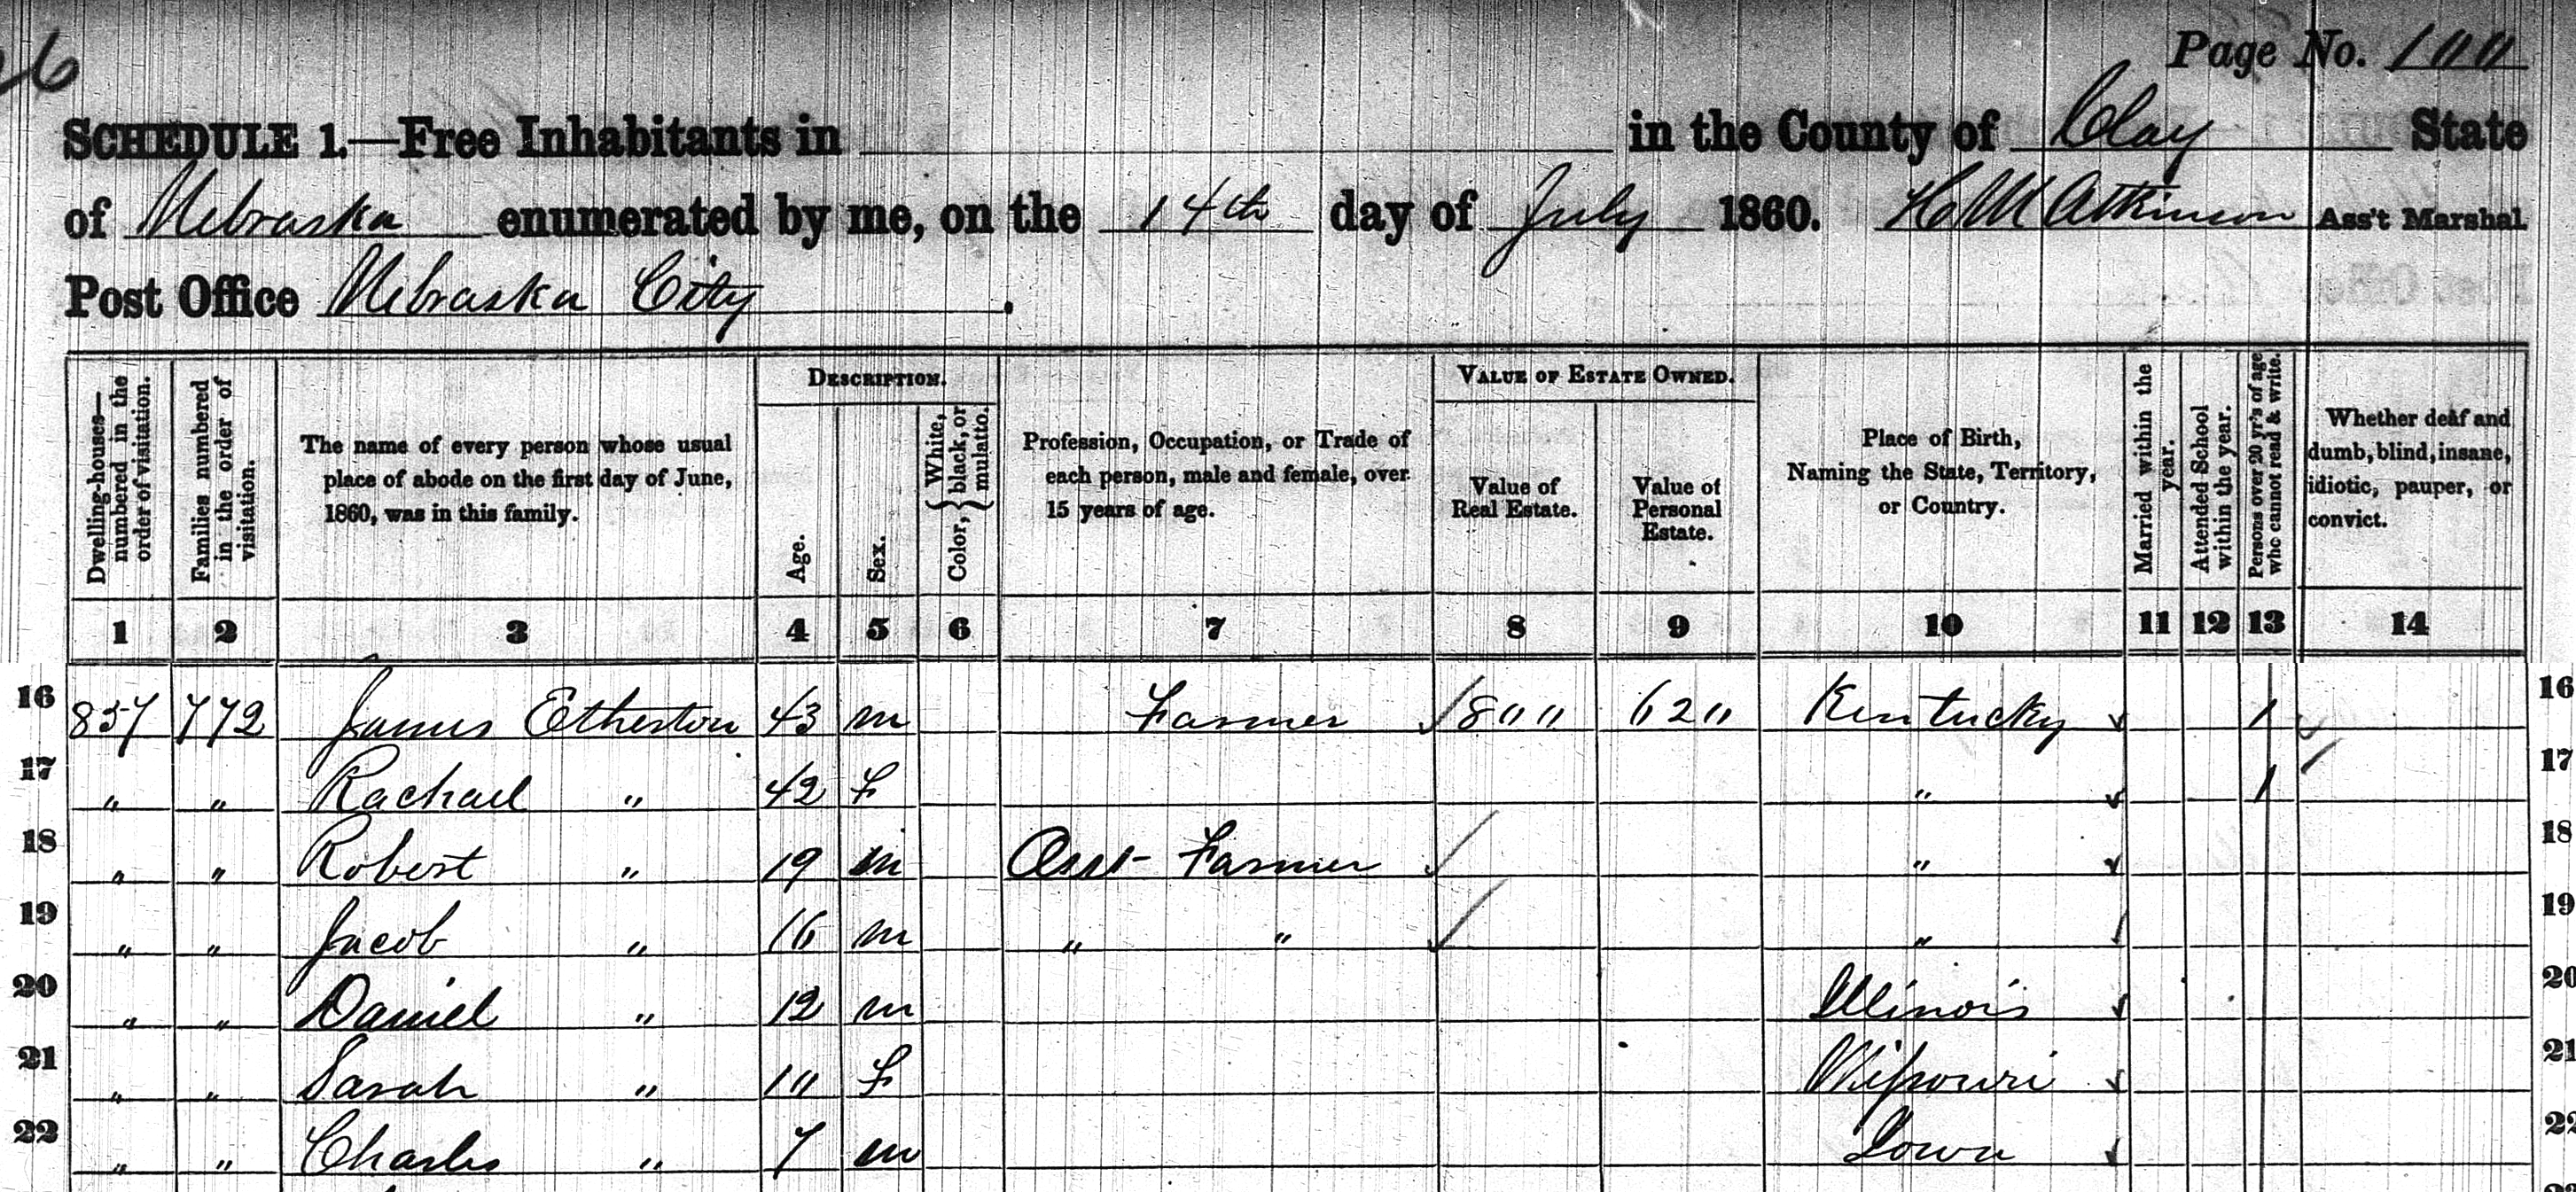 26
Page No. 100
SCHEDULE 1.—Free Inhabitants in in the County of Clay State
of Nebraska enumerated by me, on the 14th day of July 1860. H M Atkinson Ass't Marshal
Post Office Nebraska City.
DESCRIPTION. VALUE OF ESTATE OWNED.
Dwelling-houses— numbered in the order of visitation.
Families numbered in the order of visitation.
The name of every person whose usual
place of abode on the first day of June,
1860, was in this family.
Age.
Sex.
Color, { White, black, or mulatto.
Profession, Occupation, or Trade of
each person, male and female, over
15 years of age.
Value of
Real Estate.
Value of
Personal
Estate.
Place of Birth,
Naming the State, Territory,
or Country.
Married within the year.
Attended School within the year.
Persons over 20 yr's of age who cannot read & write.
Whether deaf and
dumb, blind, insane,
idiotic, pauper, or
convict.
1 2 3 4 5 6 7 8 9 10 11 12 13 14
16 857 772 James Etherton 43 m Farmer 800 620 Kentucky 1 16
17 " " Rachael " 42 F " 1 17
18 " " Robert " 19 m Asst Farmer " 18
19 " " Jacob " 16 m " " " 19
20 " " Daniel " 12 m Illinois 20
21 " " Sarah " 10 F Missouri 21
22 " " Charles " 7 m Iowa 22